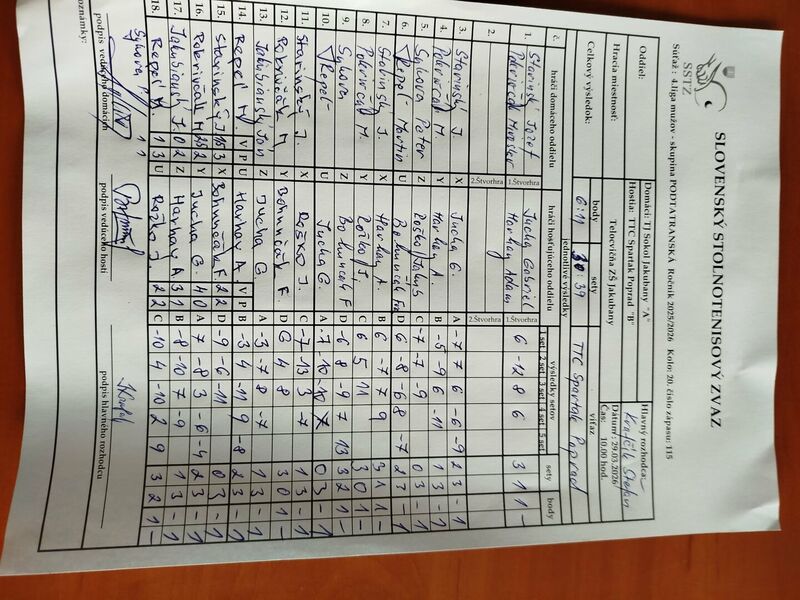 SLOVENSKÝ STOLNOTENISOVÝ ZVÄZ
SSTZ
Súťaž : 4.liga mužov - skupina PODTATRANSKÁ Ročník 2025/2026 Kolo: 20. číslo zápasu: 115
Oddiel: Domáci: TJ Sokol Jakubany "A" Hlavný rozhodca:
Hostia: TTC Spartak Poprad "B" Kundľa Štefan
Hracia miestnosť: Telocvičňa ZŠ Jakubany Dátum: 29.03.2026
Čas: 10.00 hod.
Celkový výsledok: body sety víťaz
6:11 30:39 TTC Spartak Poprad
č. hráči domáceho oddielu hráči hosťujúceho oddielu jednotlivé výsledky
výsledky setov sety body
1 set 2 set 3 set 4 set 5 set
1. Starinský Jozef 1.Štvorhra Jucha Gabriel 1.Štvorhra 6 -12 8 6 3 1 1 -
Pokrivčák Miroslav Harhay Adam
2. 2.Štvorhra 2.Štvorhra
3. Starinský J. X Jucha G. A -7 7 6 -6 -9 2 3 - 1
4. Pokrivčák M. Y Harhay A. B -5 9 6 -11
5. Sýkora Peter Z Roško Jakub C -7 -7 -9 0 3 - 1
6. Repel Martin U D 6 -8 -6 8 -7 2 3 - 1
7. Starinský J. X Harhay A. B 6 -7 7 9 3 1 1 -
8. Pokrivčák M. Y Roško J. C 6 5 11 3 0 1 -
9. Sýkora Z D -6 8 -9 7 13 3 2 1 -
10. Repel U Jucha G. A 0 3 - 1
11. Starinský J. X Roško J. C -7 -13 3 -7 1 3 - 1
12. Pokrivčák M Y D 6 4 8 3 0 1 -
13. Jakubiansky Ján Z Jucha G. A -3 -7 8 -7 1 3 - 1
14. Repel M. V P U Harhay A V P B -3 4 -11 9 -8 2 3 - 1
15. Starinský J 1 5 3 X F 2 2 D -9 -6 -11 0 3 - 1
16. Pokrivčák M 2 5 2 Y Jucha G. 4 0 A 7 -8 3 -6 -4 2 3 - 1
17. Jakubiansky J. 0 2 Z Harhay A 3 1 B -8 -10 7 -9 1 3 - 1
18. Repel M. 1 3 U Roško J. 2 2 C -10 4 -10 2 9 3 2 1 -
Sýkora P. 1 1
podpis vedúceho domácich podpis vedúceho hostí podpis hlavného rozhodcu
poznámky: